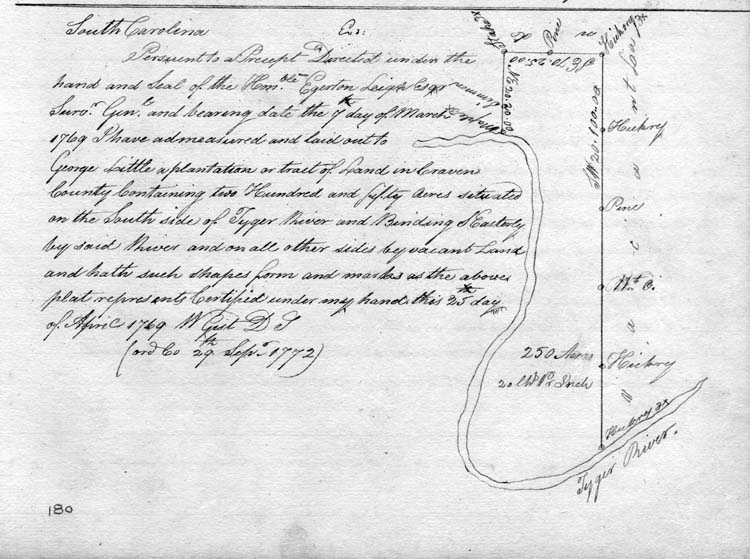 South Carolina
Pursuant to a Precept Directed under the
hand and Seal of the Honble Egerton Leigh Esqr
Survr Genl and bearing date the 7th day of March
1769 I have admeasured and laid out to
George Little a plantation or tract of Land in Craven
County Containing two Hundred and fifty Acres situated
on the South side of Tyger River and Binding NEasterly
by said River and on all other sides by vacant Land
and hath such shapes form and marks as the above
plat represents Certified under my hand this 25th day
of April 1769 W Gist D S
(ord Co 29th Sepr 1772)
Pine
Hickory 3x
NE 70.25.00
N 20.20.00
SW 20.120.00
Hickry
Pine
Wt O.
Hickry
Hickry 3x
vacant Land
250 Acres
20 Chs Pr Inch
Tyger River.
180